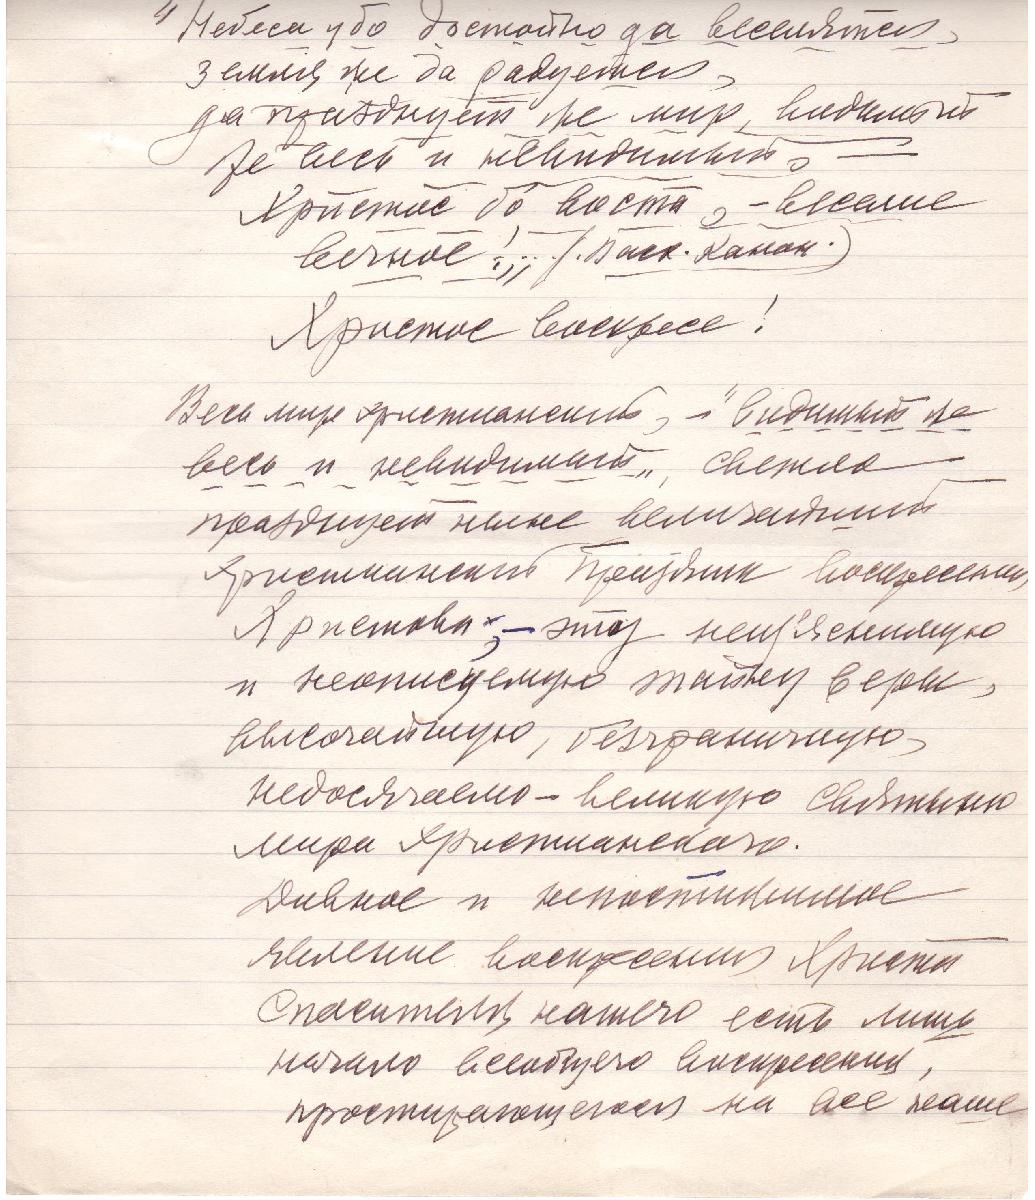 "Небеса убо достойно да веселятся,
земля же да радуется,
да празднует же мир, видимый
же весь и невидимый, —
Христос бо воста, - веселие
вечное!,,... (Пасх. Канон.)
Христос воскресе!
Весь мир христианский, - "видимый же
весь и невидимый", светло
празднует ныне величайший
христианский Праздник воскресения
Христова, - эту неизъяснимую
и неописуемую тайну веры,
высочайшую, безграничную,
недосягаемо - великую святыню
мира христианского.
Дивное и непостижимое
явление воскресения Христа
Спасителя нашего есть лишь
начало всеобщего воскресения,
простирающегося на все наше